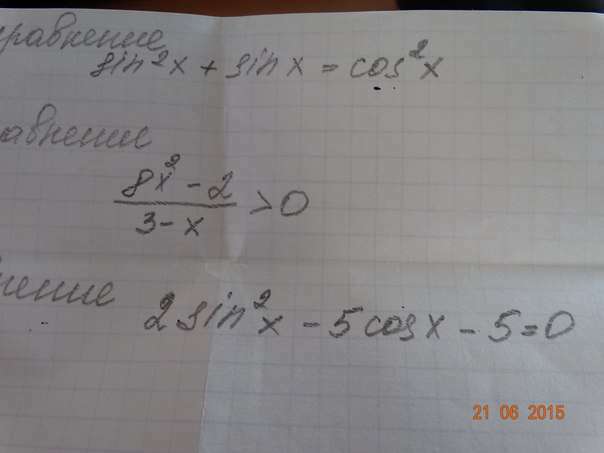 равнение
sin²x + sin x = cos²x
авнение
8x² - 2
3 - x
> 0
нение
2 sin²x - 5 cos x - 5 = 0
21 06 2015